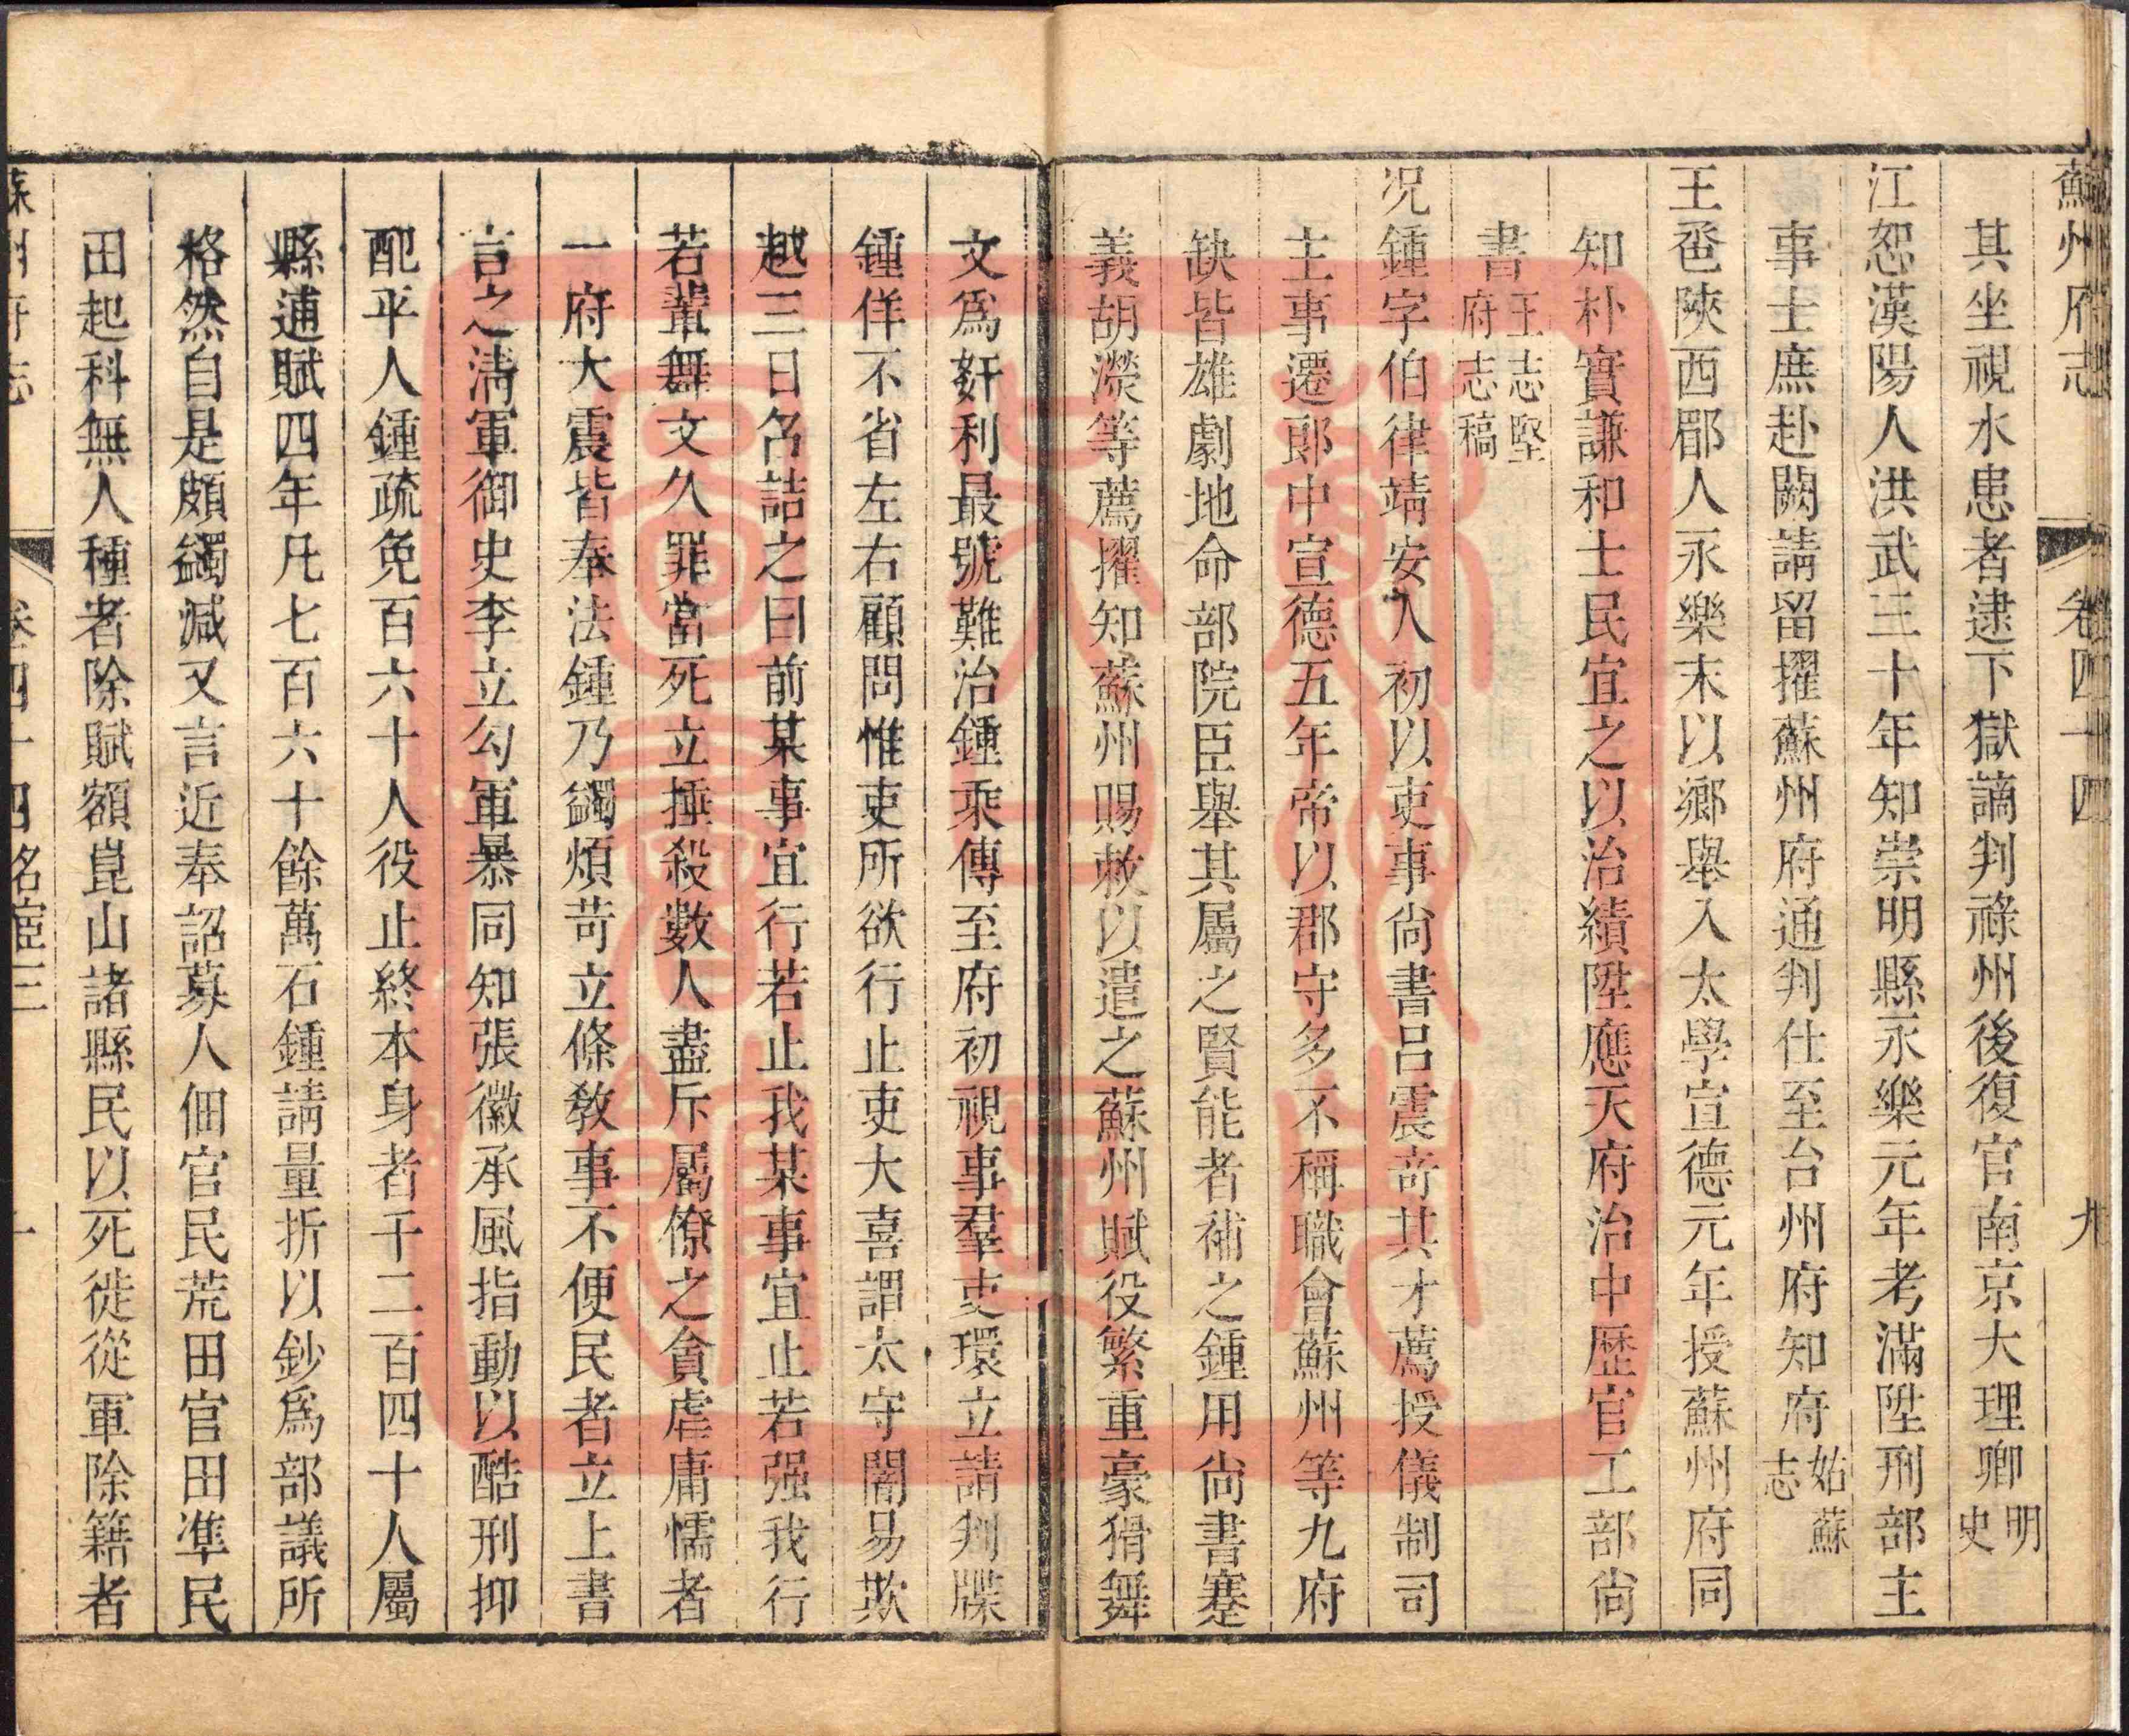 蘇州府志 卷四十四 九
其坐視水患者逮下獄謫判祿州後復官南京大理卿明史
江恕漢陽人洪武三十年知崇明縣永樂元年考滿陞刑部主
事士庶赴闕請留擢蘇州府通判仕至台州府知府姑蘇志
王卺陝西郿人永樂末以鄉舉入太學宣德元年授蘇州府同
知朴實謙和士民宜之以治績陞應天府治中歷官工部尚
書王志堅府志稿
况鍾字伯律靖安人初以吏事尚書呂震奇其才薦授儀制司
主事遷郎中宣德五年帝以郡守多不稱職會蘇州等九府
缺皆雄劇地命部院臣舉其屬之賢能者補之鍾用尚書蹇
義胡濙等薦擢知蘇州賜敕以遣之蘇州賦役繁重豪猾舞
文爲奸利最號難治鍾乘傳至府初視事羣吏環立請判牒
鍾佯不省左右顧問惟吏所欲行止吏大喜謂太守闇易欺
越三日名詰之曰前某事宜行若止我某事宜止若强我行
若輩舞文久罪當死立捶殺數人盡斥屬僚之貪虐庸懦者
一府大震皆奉法鍾乃蠲煩苛立條敎事不便民者立上書
言之淸軍御史李立勾軍暴同知張徽承風指動以酷刑抑
配平人鍾疏免百六十人役止終本身者千二百四十人屬
縣逋賦四年凡七百六十餘萬石鍾請量折以鈔爲部議所
格然自是頗蠲減又言近奉詔募人佃官民荒田官田準民
田起科無人種者除賦額崑山諸縣民以死徙從軍除籍者
蘇州府志 卷四十四名宦三